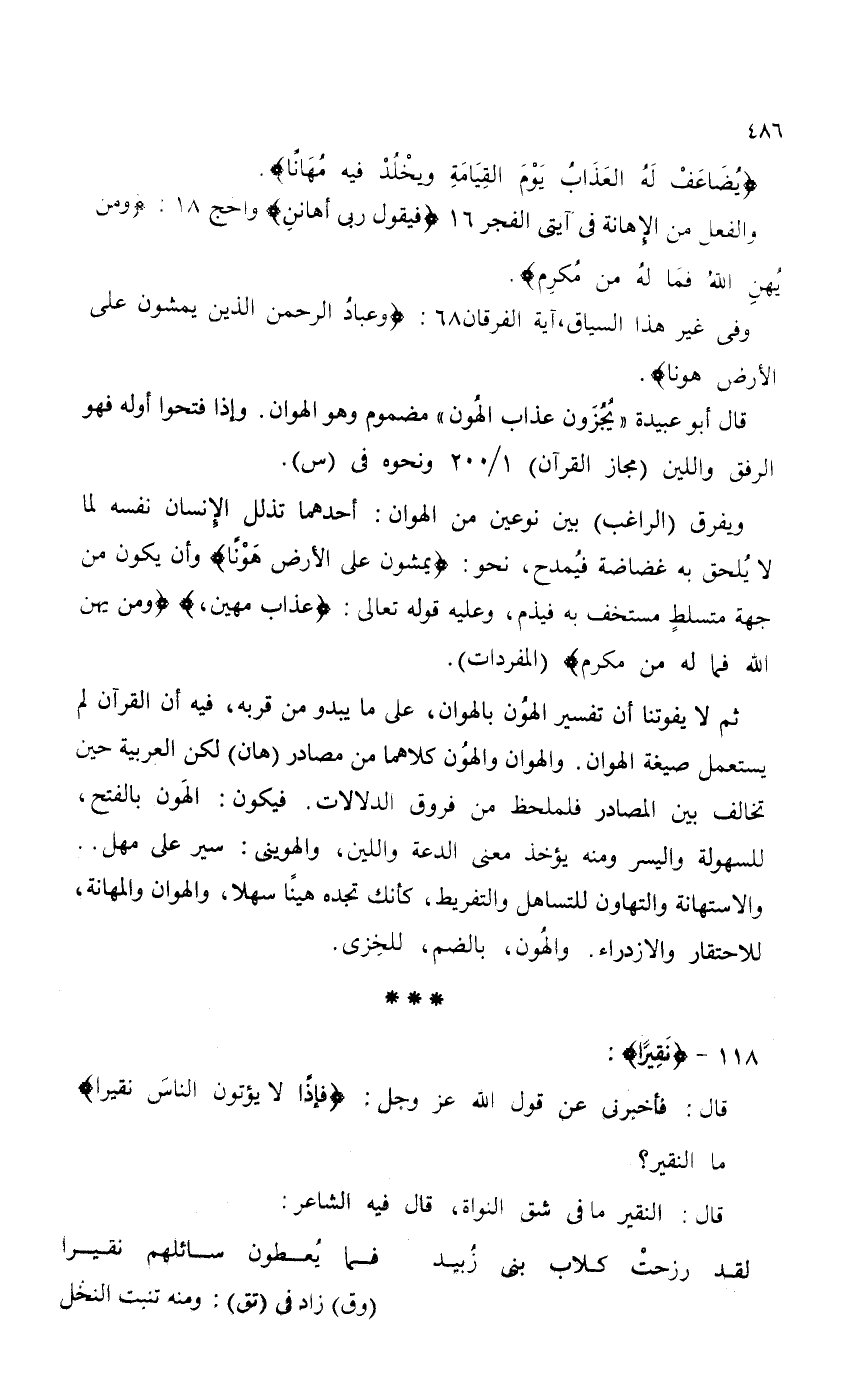 ٤٨٦
﴿يُضَاعَفْ لَهُ العَذَابُ يَوْمَ القِيَامَةِ ويخْلُدْ فيه مُهَانًا﴾.
والفعل من الإهانة فى آيتى الفجر ١٦ ﴿فيقول ربى أهاننِ﴾ واحج ١٨ : ﴿ومن
يُهنِ اللهُ فمَا لهُ من مُكرِم﴾.
وفى غير هذا السياق، آية الفرقان٦٨ : ﴿وعبادُ الرحمن الذين يمشون على
الأرض هونا﴾.
قال أبو عبيدة «يُجْزَون عذاب الهُون» مضموم وهو الهوان. وإذا فتحوا أوله فهو
الرفق واللين (مجاز القرآن) ٢٠٠/١ ونحوه فى (س).
ويفرق (الراغب) بين نوعين من الهوان: أحدهما تذلل الإنسان نفسه لما
لا يُلحق به غضاضة فيُمدح، نحو: ﴿يمشون على الأرض هَوْنًا﴾ وأن يكون من
جهة متسلطٍ مستخف به فيذم، وعليه قوله تعالى: ﴿عذاب مهين،﴾ ﴿ومن يهن
الله فما له من مكرم﴾ (المفردات).
ثم لا يفوتنا أن تفسير الهوُن بالهوان، على ما يبدو من قربه، فيه أن القرآن لم
يستعمل صيغة الهوان. والهوان والهوُن كلاهما من مصادر (هان) لكن العربية حين
تخالف بين المصادر فلملحظ من فروق الدلالات. فيكون: الهَون بالفتح،
للسهولة واليسر ومنه يؤخذ معنى الدعة واللين، والهوينى: سير على مهل..
والاستهانة والتهاون للتساهل والتفريط، كأنك تجده هينًا سهلا، والهوان والمهانة،
للاحتقار والازدراء. والهُون، بالضم، للخِزى.
***
١١٨ - ﴿نَقِيرًا﴾ :
قال: فأخبرنى عن قول الله عز وجل: ﴿فإذًا لا يؤتون الناسَ نقيرا﴾
ما النقير؟
قال: النقير مافى شق النواة، قال فيه الشاعر:
لقد رزحتْ كلاب بنى زُبيد فما يُعطون سائلهم نقيرا
(وق) زاد فى (تق) : ومنه تنبت النخل